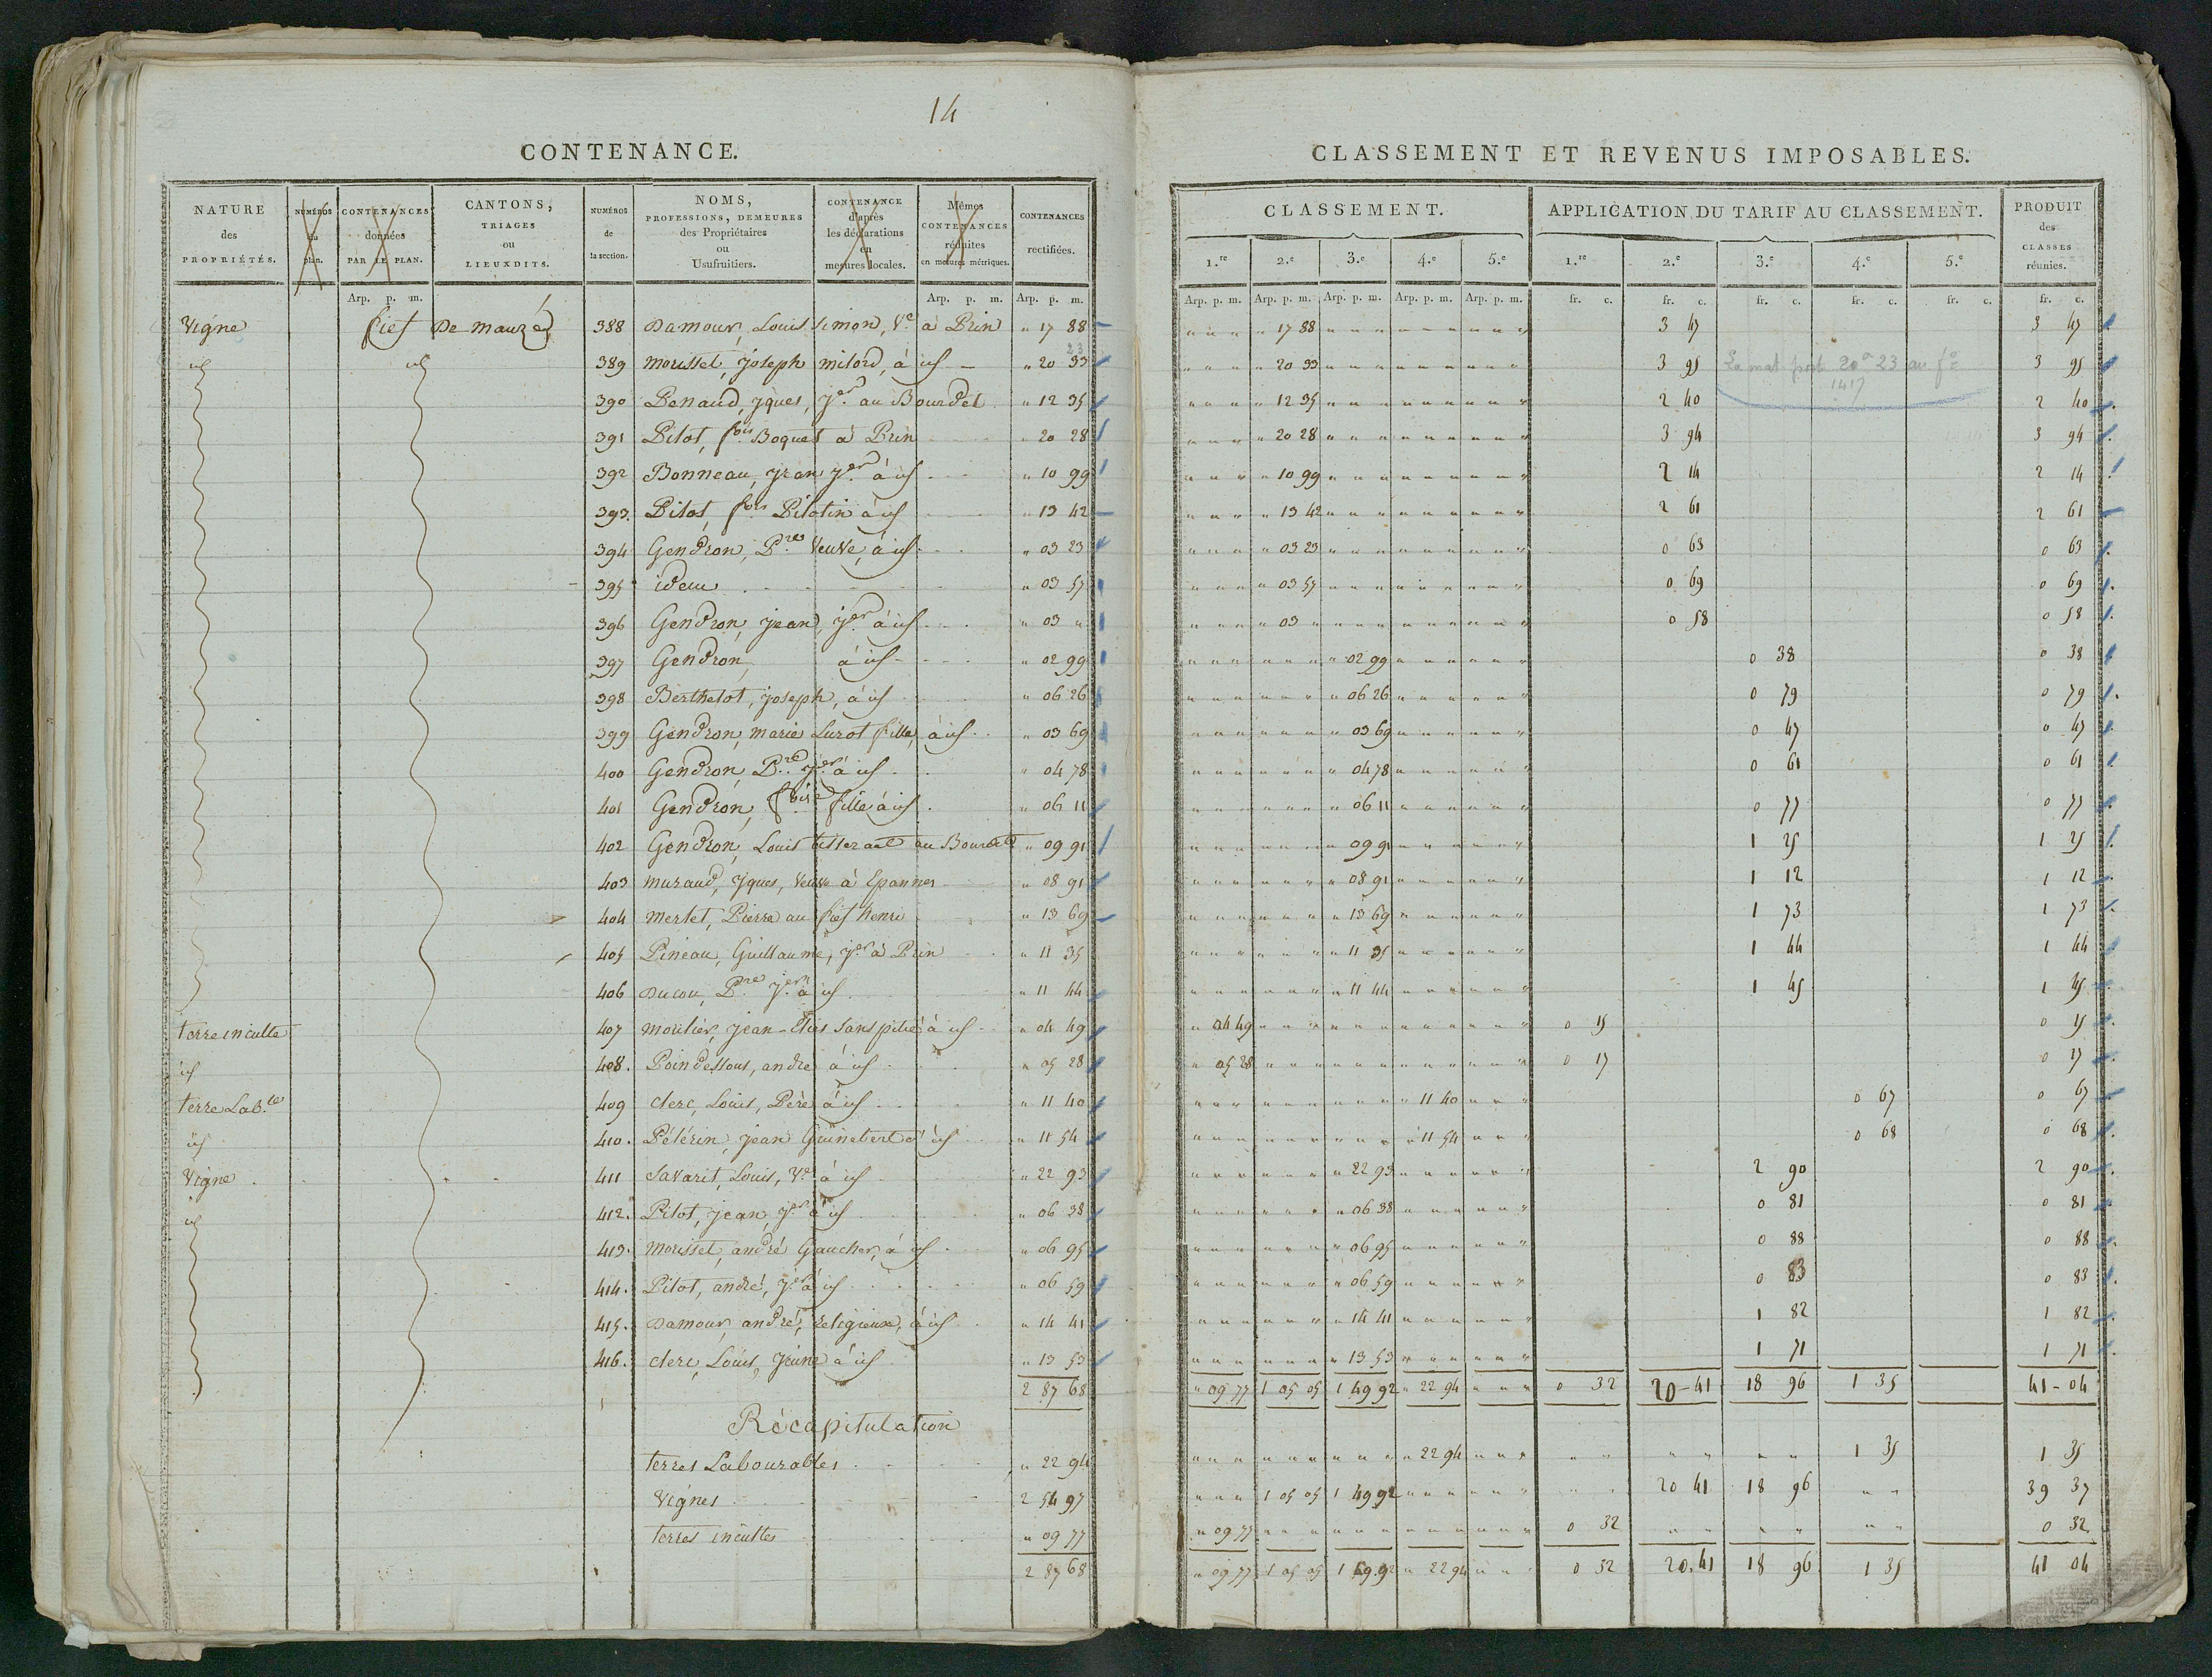 14
CONTENANCE.
NATURE des PROPRIÉTÉS.
NUMÉROS du plan.
CONTENANCES données PAR LE PLAN.
CANTONS, TRIAGES ou LIEUXDITS.
NUMÉROS de la section.
NOMS, PROFESSIONS, DEMEURES des Propriétaires ou Usufruitiers.
CONTENANCE d'après les déclarations en mesures locales.
Mêmes CONTENANCES réduites en mesures métriques.
CONTENANCES rectifiées.
Arp. p. m. Arp. p. m. Arp. p. m.
Vigne fief De mauzé 388 Damour, Louis Simon, Ve. à Brin " 17 88
id id 389 morisset, joseph milord, à id " 20 33 23
390 Benaud, jques, jer. au Bourdet " 12 35
391 Pitot, fois Boquet à Brin " 20 28
392 Bonneau, jean jer. à id " 10 99
393. Pitot, fois Pilotin à id " 13 42
394 Gendron, Pre veuve, à id " 03 23
395 idem " 03 57
396 Gendron, jean, jer. à id " 03 "
397 Gendron, à id " 02 99
398 Berthelot, joseph, à id " 06 26
399 Gendron, marie Luzot fille, à id " 03 69
400 Gendron, Pre jer. à id " 04 78
401 Gendron, foise fille à id " 06 11
402 Gendron, Louis tisserant au Bourdet " 09 91
403 muraud, jques, veuve à Epannes " 08 91
404 mertet, Pierre au fief henri " 13 69
405 Pineau, Guillaume, jer. à Brin " 11 35
406 Ducou, Pre jer. à id " 11 44
terre inculte 407 moulier, jean-Elies sanspitié à id " 04 49
id 408. Poindessous, andré à id " 05 28
terre Lab.le 409 clerc, Louis, Père à id " 11 40
id 410. Pélérin, jean Guinebert à id " 11 54
Vigne 411 Savarit, Louis, Ve. à id " 22 93
id 412. Pitot, jean, jer. à id " 06 38
413. morisset, andré Gaucher, à id " 06 95
414. Pitot, andré, jer. à id " 06 59
415. Damour, andré, religieux, à id " 14 41
416. clerc, Louis, jeune à id " 13 53
2 87 68
Récapitulation
terres Labourables " 22 94
Vignes 2 54 97
terres incultes " 09 77
2 87 68
CLASSEMENT ET REVENUS IMPOSABLES.
CLASSEMENT. APPLICATION DU TARIF AU CLASSEMENT. PRODUIT des CLASSES réunies.
1.re 2.e 3.e 4.e 5.e 1.re 2.e 3.e 4.e 5.e
Arp. p. m. Arp. p. m. Arp. p. m. Arp. p. m. Arp. p. m. fr. c. fr. c. fr. c. fr. c. fr. c. fr. c.
" 17 88 3 47 3 47
" 20 33 3 95 La mat. porte 20a 23 au fo 3 95
1417
" 12 35 2 40 2 40
" 20 28 3 94 3 94
" 10 99 2 14 2 14
" 13 42 2 61 2 61
" 03 23 0 63 0 63
" 03 57 0 69 0 69
" 03 " 0 58 0 58
" 02 99 0 38 0 38
" 06 26 0 79 0 79
" 03 69 0 47 0 47
" 04 78 0 61 0 61
" 06 11 0 77 0 77
" 09 91 1 25 1 25
" 08 91 1 12 1 12
" 13 69 1 73 1 73
" 11 35 1 44 1 44
" 11 44 1 45 1 45
" 04 49 0 15 0 15
" 05 28 0 17 0 17
" 11 40 0 67 0 67
" 11 54 0 68 0 68
" 22 93 2 90 2 90
" 06 38 0 81 0 81
" 06 95 0 88 0 88
" 06 59 0 83 0 83
" 14 41 1 82 1 82
" 13 53 1 71 1 71
" 09 77 1 05 05 1 49 92 " 22 94 " " " 0 32 20-41 18 96 1 35 41-04
" 22 94 1 35 1 35
1 05 05 1 49 92 20 41 18 96 39 37
" 09 77 0 32 0 32
" 09 77 1 05 05 1 49.92 " 22 94 0 32 20.41 18 96 1 35 41 04